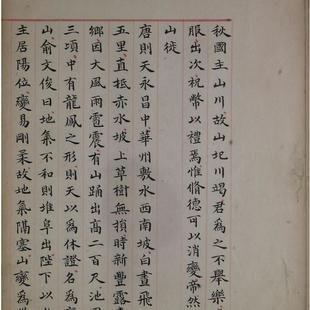 秋國主山川故山圯川竭君為之不舉樂
服出次祝幣以禮焉惟脩德可以消變帝然
山徙
唐則天永昌中華州敷水西南坡白晝飛
五里直抵赤水坡上草樹無損時新豐露
鄉因大風雨雹震有山踊出高二百尺池
三頃中有龍鳳之形則天以為休證名為
山俞文俊曰地氣不和則堆阜出陛下以
主居陽位變易剛柔故地氣隔塞山變為